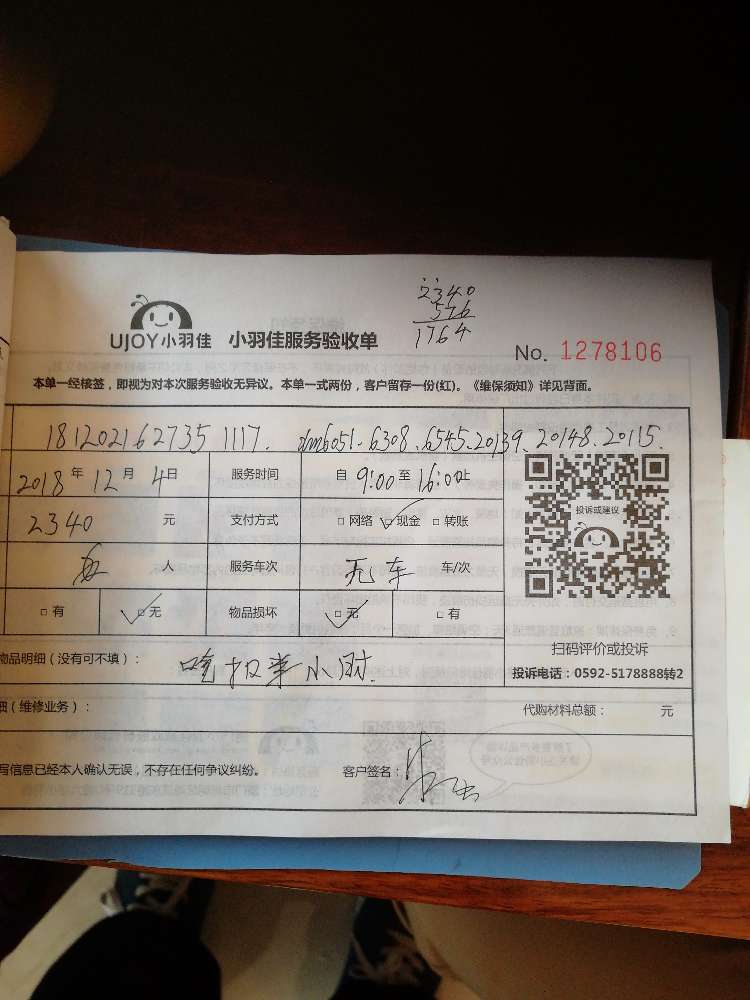 2340
576
1764
UJOY小羽佳 小羽佳服务验收单
No. 1278106
本单一经核签,即视为对本次服务验收无异议。本单一式两份,客户留存一份(红)。《维保须知》详见背面。
181202162735 1117. dm6051.6308.6545.20139.20148.20115.
2018年12月4日 服务时间 自9:00至16:00止
投诉或建议
2340元 支付方式 □网络 □现金 □转账
人 服务车次 无车 车/次
□有 □无 物品损坏 □无 □有
扫码评价或投诉
物品明细(没有可不填): 吃饭半小时.
投诉电话:0592-5178888转2
细(维修业务): 代购材料总额: 元
写信息已经本人确认无误,不存在任何争议纠纷。 客户签名: